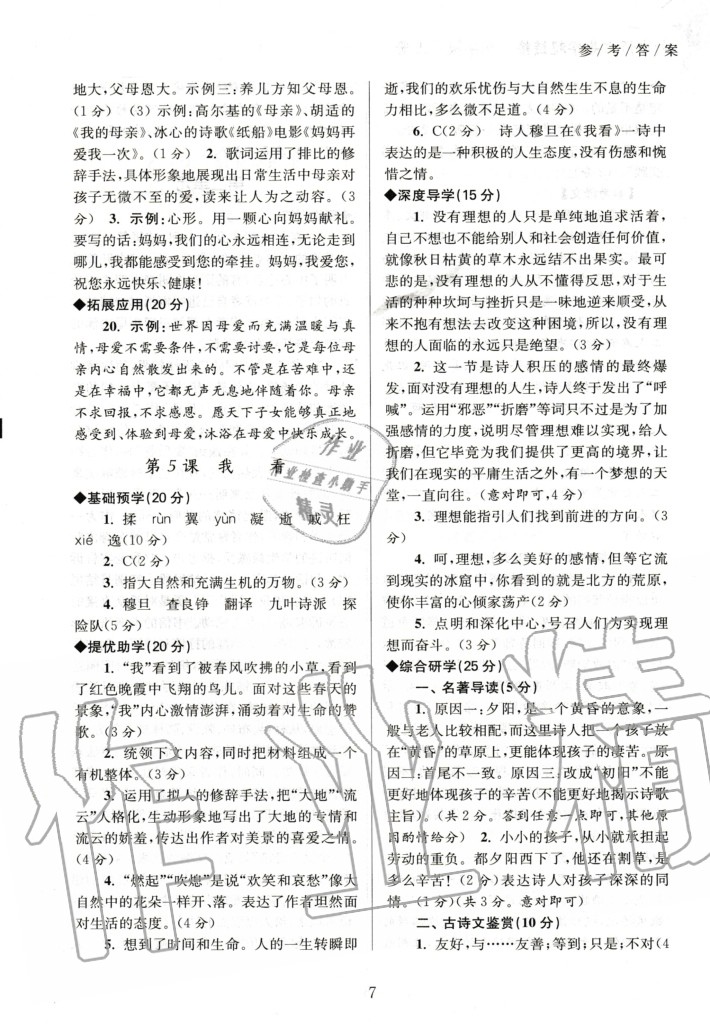 参/考/答/案
地大,父母恩大。示例三:养儿方知父母恩。
(1分)(3)示例:高尔基的《母亲》、胡适的
《我的母亲》、冰心的诗歌《纸船》电影《妈妈再
爱我一次》。(1分) 2. 歌词运用了排比的修
辞手法,具体形象地展现出日常生活中母亲对
孩子无微不至的爱,读来让人为之动容。(3
分) 3. 示例:心形。用一颗心向妈妈献礼。
要写的话:妈妈,我们的心永远相连,无论走到
哪儿,我都能感受到您的牵挂。妈妈,我爱您,
祝您永远快乐、健康!
◆拓展应用(20分)
20. 示例:世界因母爱而充满温暖与真
情,母爱不需要条件,不需要讨要,它是每位母
亲内心自然散发出来的。不管是在苦难中,还
是在快乐中,它都无声无息地伴随着你。母亲
不求回报,不求感恩。愿天下子女能够真正地
感受到、体验到母爱,沐浴在母爱中快乐成长。
第5课 我 看
◆基础预学(20分)
1. 揉 rùn 翼 yùn 凝 逝 戚 枉
xié 逸(10分)
2. C(2分)
3. 指大自然和充满生机的万物。(3分)
4. 穆旦 查良铮 翻译 九叶诗派 探
险队(5分)
◆提优助学(20分)
1. “我”看到了被春风吹拂的小草,看到
了红色晚霞中飞翔的鸟儿。面对这些春天的
景象,“我”内心激情澎湃,涌动着对生命的赞
歌。(3分)
2. 统领下文内容,同时把材料组成一个
有机整体。(3分)
3. 运用了拟人的修辞手法,把“大地”“流
云”人格化,生动形象地写出了大地的专情和
流云的娇羞,传达出作者对美景的喜爱之情。
(4分)
4. “燃起”“吹熄”是说“欢笑和哀愁”像大
自然中的花朵一样开、落。表达了作者坦然面
对生活的态度。(4分)
5. 想到了时间和生命。人的一生转瞬即
逝,我们的欢乐忧伤与大自然生生不息的生命
力相比,多么微不足道。(4分)
6. C(2分) 诗人穆旦在《我看》一诗中
表达的是一种积极的人生态度,没有伤感和惋
惜之情。
◆深度导学(15分)
1. 没有理想的人只是单纯地追求活着,
自己不想也不可能给别人和社会创造任何价值,
就像秋日枯黄的草木永远结不出果实。最可
悲的是,没有理想的人从不懂得反思,对于生
活的种种坎坷与挫折只是一味地逆来顺受,从
来不抱有想法去改变这种困境。所以,没有理
想的人面临的永远只是绝望。(3分)
2. 这一节是诗人积压的感情的最终爆
发,面对没有理想的人生,诗人终于发出了“呼
喊”。运用“邪恶”“折磨”等词只不过是为了加
强感情的力度,说明尽管理想难以实现,但是
它确实为我们提供了更高的境界,让我们明白
在我们现实的平庸生活之外,有一个梦想的天
堂,一直向往。(可赞同可反对)(4分)
3. 理想能指引人们找到前进的方向。(3
分)
4. 呵,理想,多么美好的感情,但等它流
到现实的冰窟中,你看到的就是北方的荒原,
使你丰富的心倾家荡产(2分)
5. 点明和深化中心,号召人们为实现理
想而奋斗。(3分)
◆综合研学(25分)
一、名著导读(5分)
1. 原因一:夕阳,是一个黄昏的意象,一
般与老人比较搭配,而这里诗人把一个孩子放
在“黄昏”的草原上,更能体现孩子的凄苦。原
因二:首尾不一致。原因三:改成“初阳”不能更
好地体现孩子的辛苦(不能更好地揭示诗歌
主旨)。(共2分。答到任意一点即可,其他原
因酌情给分) 2. 小小的孩子,从小就承担起
劳动的重负。都夕阳西下了,他还在干活,是
多么辛苦!(2分)表达诗人对孩子深深的同
情。(1分)(共3分)
二、古诗文鉴赏(10分)
1. 友好,与……友善;等到;只是;不对(4
7
作业
作业检查小助手
精灵
作业精